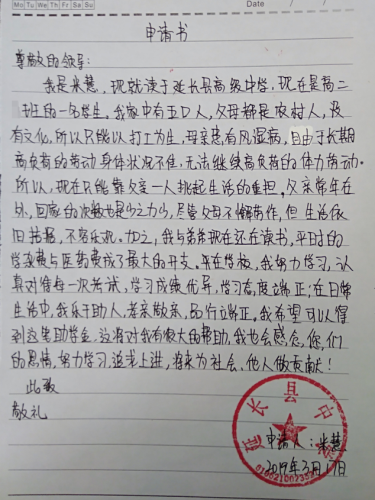 Mo Tu We Th Fr Sa Su
申请书
尊敬的领导:
我是米慧,现就读于延长县高级中学,现在是高二
班的一名学生。我家中有五口人,父母都是农村人,没
有文化,所以只能以打工为生,母亲患有风湿病,且由于长期
高负荷的劳动身体状况不佳,无法继续高负荷的体力劳动。
所以,现在只能靠父亲一人挑起生活的重担。父亲常年在
外,回家的次数也是少之又少,尽管父母不懈劳作,但生活依
旧拮据,不容乐观。加之,我与弟弟现在还在读书,平时的
学杂费与医药费成了最大的开支。我在学校,我努力学习,认
真对待每一次考试,学习成绩优异,学习态度端正;在日常
生活中,我乐于助人,孝亲敬亲,品行端正,我希望可以得
到这笔助学金,这将对我有很大的帮助,我也会感念你们
的恩情,努力学习,追求上进,将来为社会、他人做贡献!
此致
敬礼
申请人:米慧
2019年3月17日
延长县中学